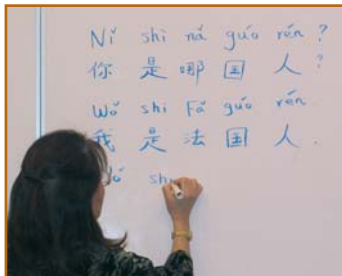 Nǐ shì nǎ guó rén?
你是哪国人?
Wǒ shì Fǎ guó rén.
我是法国人.
Wǒ sh